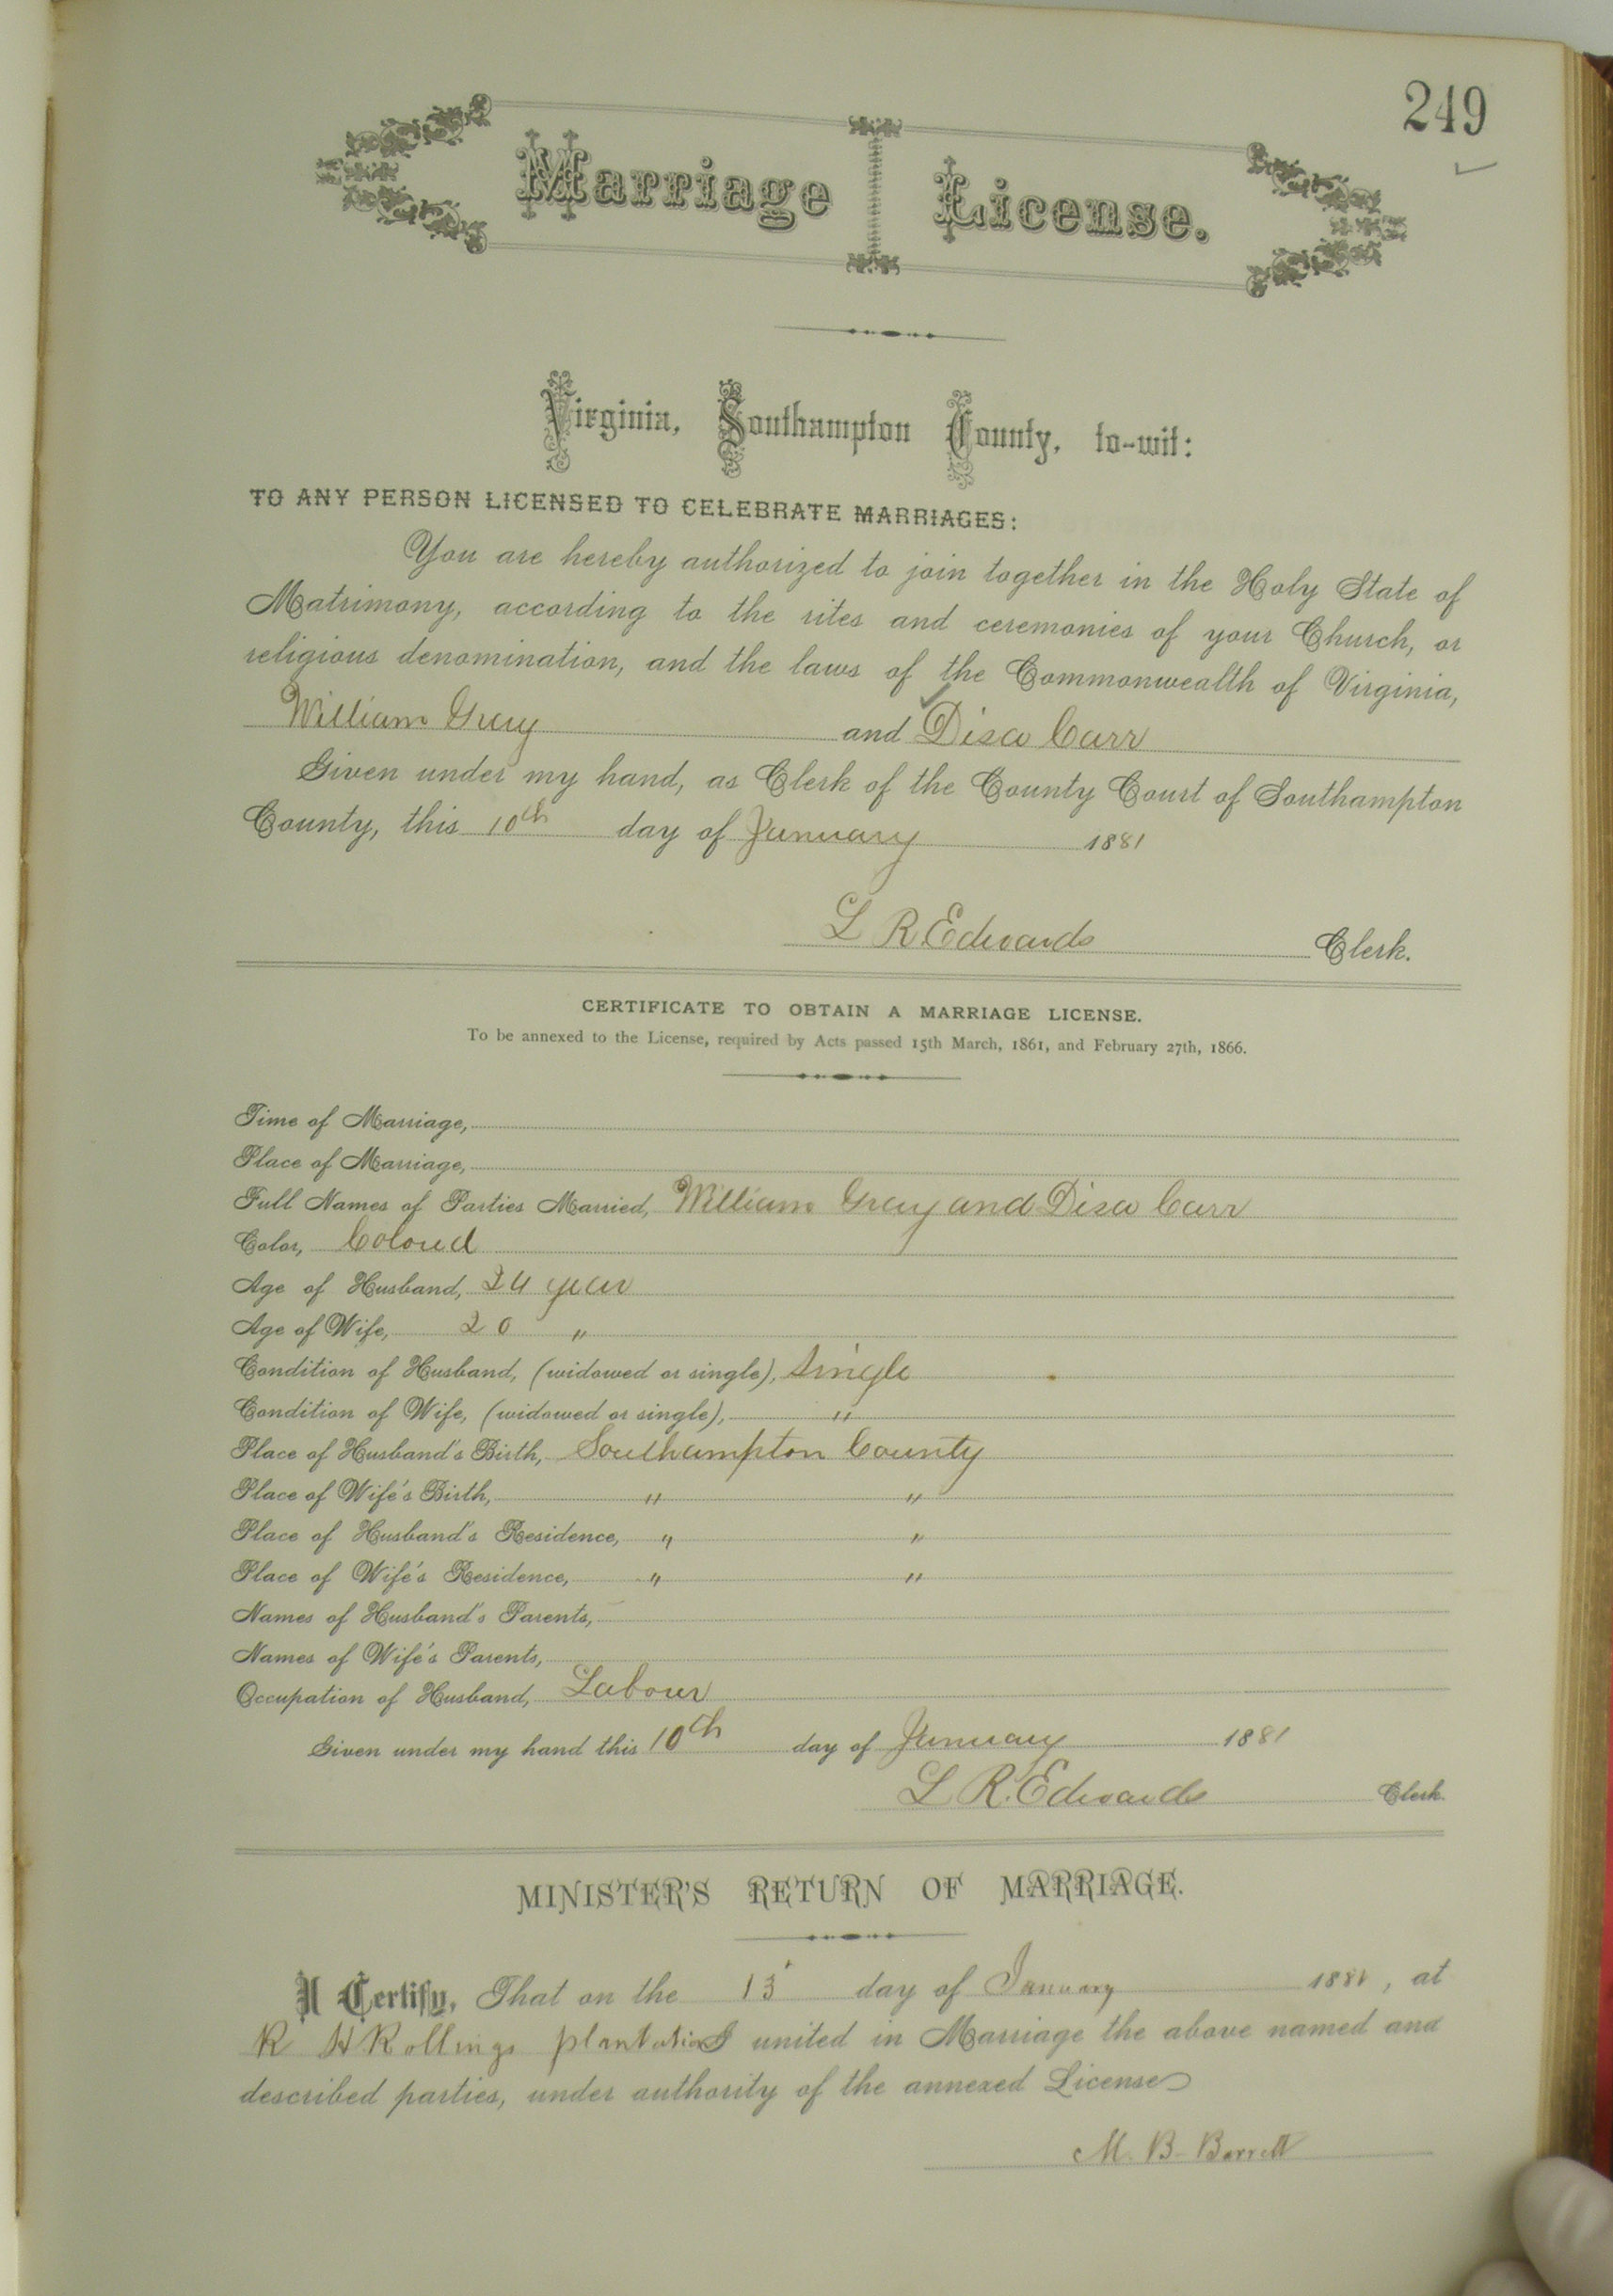 249
Marriage License.
Virginia, Southampton County, to-wit:
TO ANY PERSON LICENSED TO CELEBRATE MARRIAGES:
You are hereby authorized to join together in the Holy State of
Matrimony, according to the rites and ceremonies of your Church, or
religious denomination, and the laws of the Commonwealth of Virginia,
William Gray and Disa Carr
Given under my hand, as Clerk of the County Court of Southampton
County, this 10th day of January 1881
L R Edwards Clerk.
CERTIFICATE TO OBTAIN A MARRIAGE LICENSE.
To be annexed to the License, required by Acts passed 15th March, 1861, and February 27th, 1866.
Time of Marriage,
Place of Marriage,
Full Names of Parties Married, William Gray and Disa Carr
Color, Colored
Age of Husband, 24 year
Age of Wife, 20 "
Condition of Husband, (widowed or single), Single
Condition of Wife, (widowed or single), "
Place of Husband's Birth, Southampton County
Place of Wife's Birth, " "
Place of Husband's Residence, " "
Place of Wife's Residence, " "
Names of Husband's Parents,
Names of Wife's Parents,
Occupation of Husband, Labour
Given under my hand this 10th day of January 1881
L R. Edwards Clerk.
MINISTER'S RETURN OF MARRIAGE.
I Certify, That on the 13 day of January 1881, at
R H Rollings plantation I united in Marriage the above named and
described parties, under authority of the annexed License
M. B. Barrett